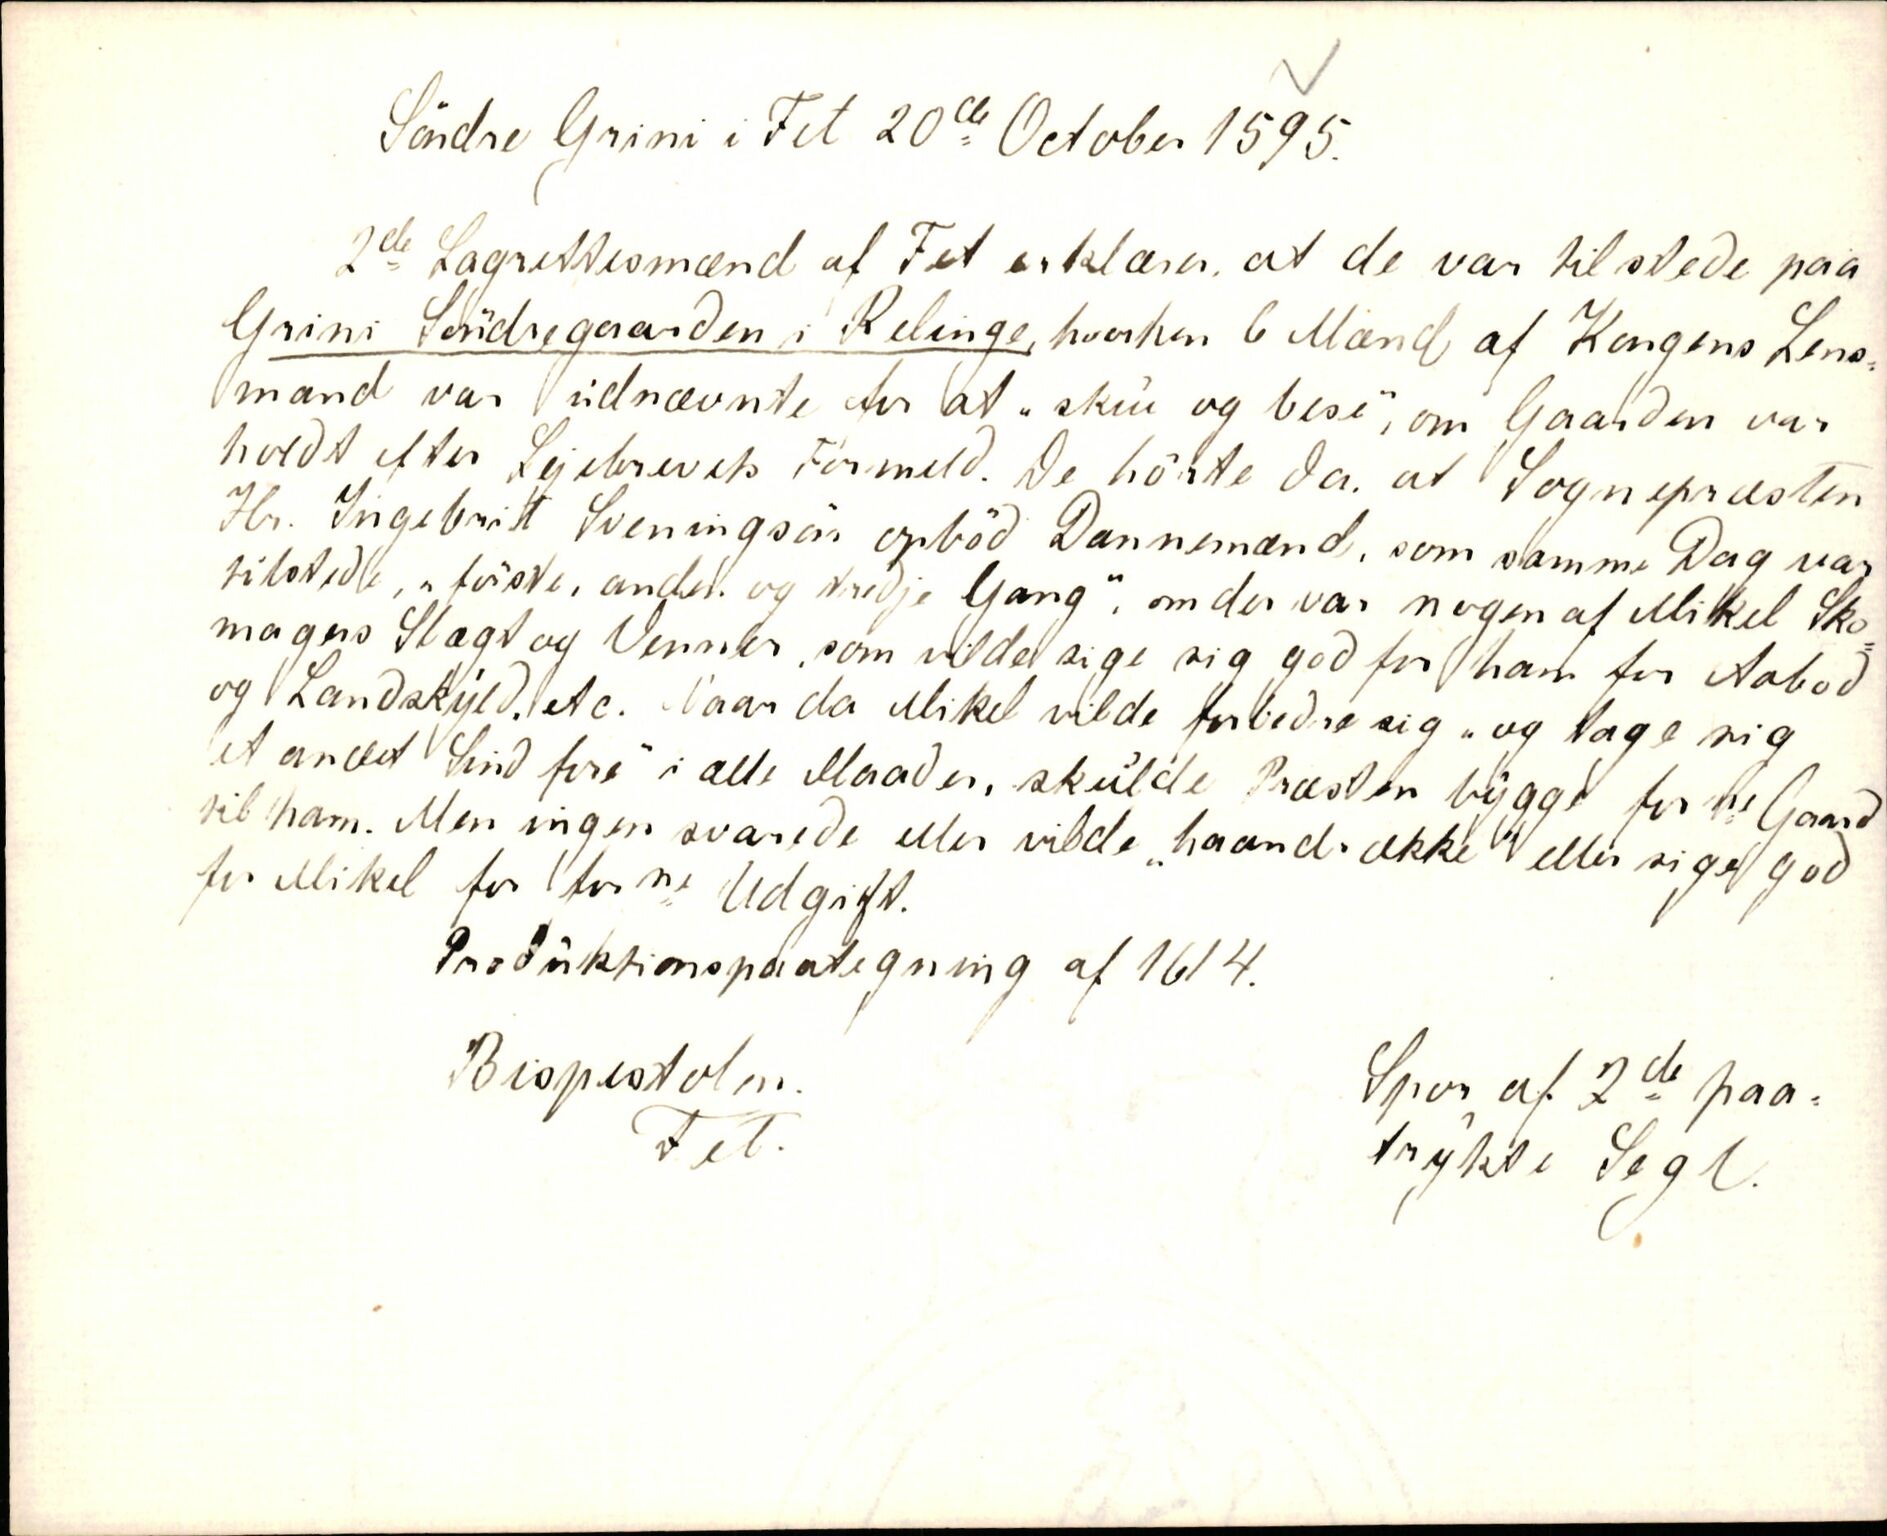 Söndre Grini i Fet 20de October 1595.
2de Lagrettesmænd af Fet erklærer, at de var tilstede paa
Grini Söndregaarden i Relinge, hvorhen 6 Mænd af Kongens Lens-
mand var udnævnte for at „skue og bese", om Gaarden var
holdt efter Lejebrevets Formeld. De hörte da, at Sognepræsten
Hr. Ingebrit Sveningsön opböd Dannemænd, som samme Dag var
tilstede, „förste, anden og tredje Gang", om der var nogen af Mikel Sko-
magers Slægt og Venner, som vilde sige sig god for ham for Aabod
og Landskyld, etc. Naar da Mikel vilde forbedre sig „og tage sig
et andet Sind fore" i alle Maader, skulde Præsten bygge forne Gaard
til ham. Men ingen svarede eller vilde „haandrække" eller sige god
for Mikel for forne Udgift.
Produktionspaategning af 1614.
Bispestolen.
Fet.
Spor af 2de paa-
trykte Segl.